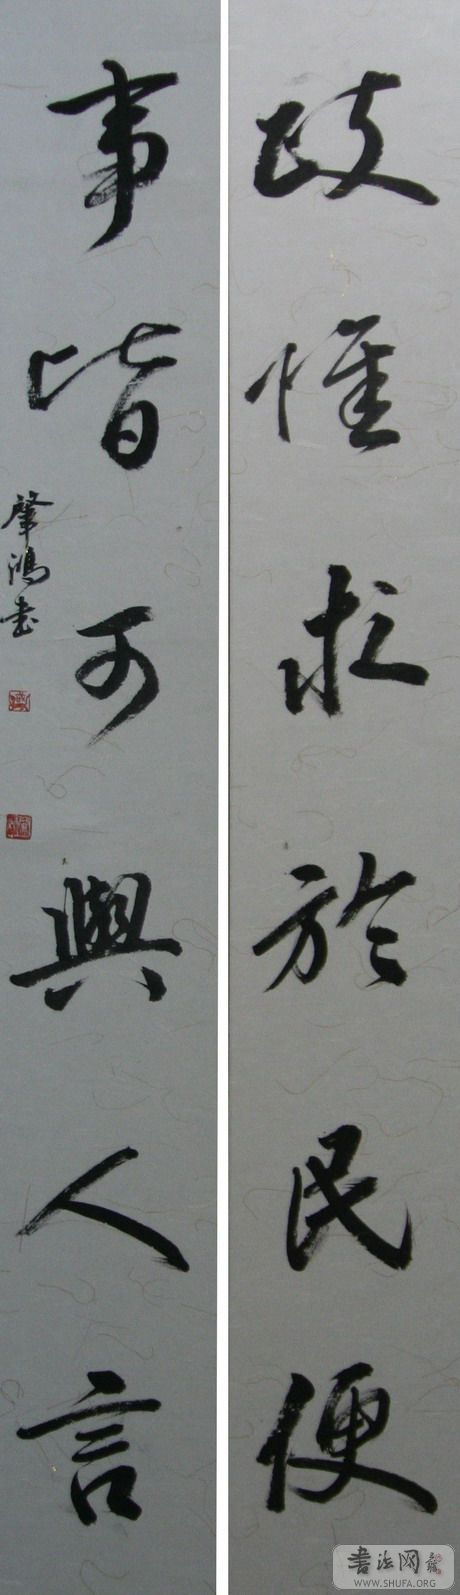 政惟求於民便
事皆可與人言
肇鴻書
書法网
WWW.SHUFA.ORG